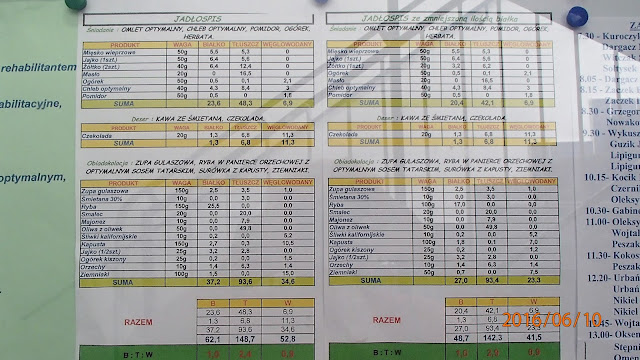 JADŁOSPIS
Śniadanie : OMLET OPTYMALNY, CHLEB OPTYMALNY, POMIDOR, OGÓREK, HERBATA.
PRODUKT WAGA BIAŁKO TŁUSZCZ WĘGLOWODANY
Mięsko wieprzowe 50g 5,5 5,3 0
Jajko (1szt.) 50g 6,4 5,6 0
Żółtko (2szt.) 40g 6,4 12,4 0
Masło 20g 0 16,5 0
Ogórek 50g 0,5 0,1 2,1
Chleb optymalny 40g 4,3 8,4 3
Pomidor 50g 0,5 0
SUMA 23,6 48,3 6,9
Deser : KAWA ZE ŚMIETANĄ, CZEKOLADA.
PRODUKT WAGA BIAŁKO TŁUSZCZ WĘGLOWODANY
Czekolada 20g 1,3 6,8 11,3
SUMA 1,3 6,8 11,3
Obiadokolacja : ZUPA GULASZOWA, RYBA W PANIERCE ORZECHOWEJ Z
OPTYMALNYM SOSEM TATARSKIM, SURÓWKA Z KAPUSTY, ZIEMNIAKI.
PRODUKT WAGA BIAŁKO TŁUSZCZ WĘGLOWODANY
Zupa gulaszowa 150g 2,5 3,5 1,0
Śmietana 30% 10g 0,0 3,0 0,0
Ryba 150g 25,5 0,0 0,0
Smalec 20g 0,0 20,0 0,0
Majonez 10g 0,0 7,9 0,0
Oliwa z oliwek 50g 0,0 49,8 0,0
Śliwki kalifornijskie 10g 0,2 0,0
Kapusta 150g 2,7 0,3 10,5
Jajko (1/2szt.) 25g 3,2 2,8 0,0
Ogórek kiszony 25g 0,2 0,0
Orzechy 10g 1,4 6,3 1,4
Ziemniaki 100g 1,5 0,0 15,0
SUMA 37,2 93,6 34,6
B T W
23,6 48,3 6,9
1,3 6,8 11,3
37,2 93,6 34,6
RAZEM 62,1 148,7 52,8
B : T : W
JADŁOSPIS ze zmniejszoną ilością białka
Śniadanie : OMLET OPTYMALNY, CHLEB OPTYMALNY, POMIDOR, OGÓREK, HERBATA.
PRODUKT WAGA BIAŁKO TŁUSZCZ WĘGLOWODANY
Mięsko wieprzowe
Jajko (1szt.) 50g
Żółtko (1szt.) 20g 3,2 6,2 0
Masło 20g 0 16,5 0
Ogórek 50g 0,5 0,1 2,1
Chleb optymalny 40g 4,3 8,4 3
Pomidor 50g
SUMA 20,4 42,1 6,9
Deser : KAWA ZE ŚMIETANĄ, CZEKOLADA.
PRODUKT WAGA BIAŁKO TŁUSZCZ WĘGLOWODANY
Czekolada 20g 1,3 6,8 11,3
SUMA 1,3 6,8 11,3
Obiadokolacja : ZUPA GULASZOWA, RYBA W PANIERCE ORZECHOWEJ Z
OPTYMALNYM SOSEM TATARSKIM, SURÓWKA Z KAPUSTY, ZIEMNIAKI.
PRODUKT WAGA BIAŁKO TŁUSZCZ WĘGLOWODANY
Zupa gulaszowa 150g 2,5 3,5 1,0
Śmietana 30% 10g 0,0 3,0 0,0
Ryba 100g 17,0 0,0 0,0
Smalec 20g 0,0 20,0 0,0
Majonez 10g 0,0 7,9 0,0
Oliwa z oliwek 50g 0,0 49,8 0,0
Śliwki kalifornijskie 10g 0,2 0,0
Kapusta 100g 1,8 0,1 7,0
Jajko (1/2szt.) 25g 3,2 2,8 0,0
Ogórek kiszony 25g
Orzechy 10g 1,4 6,3 1,4
Ziemniaki 50g 0,7 0,0 7,5
SUMA 27,0 93,4 23,3
B T W
20,4 42,1 6,9
1,3 6,8
27,0 93,4
RAZEM 48,7 142,3 41,5
B : T : W
rehabilitantem
abilitacyjne,
optymalnym,
7.30- Kuroczył
Dargacz
8.05 - Dargacz
8.15 - Zaczek
Zaczek
8.30 - Grzegor
Nowako
9.30 - Wykusz
Guzik J
Lipigur
Lipigur
10.15- Kocik
Czerni
Oleksy
10.30- Gabin
11.00- Oleksy
Wojtal
Peszal
11.30- Kokos
Peszal
12.20- Urbań
Urbań
Nikiel
Nikiel
12.45- Wojta
13.00- Oksen
2016/06/10